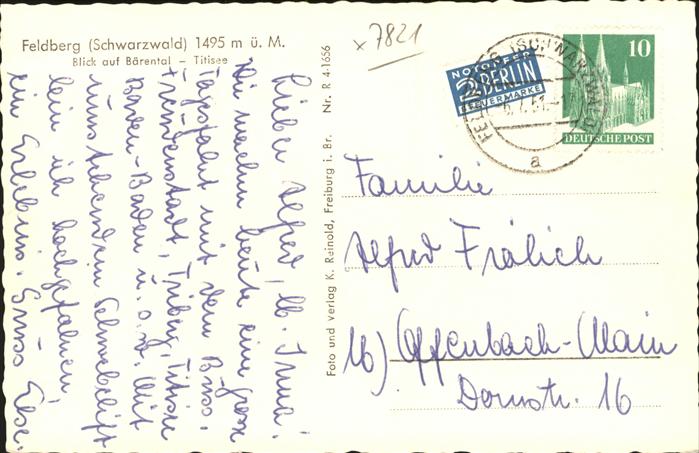 Feldberg (Schwarzwald) 1495 m ü. M.
Blick auf Bärental – Titisee
x 7821
Lieber Alfred, lb. Irma!
Wir machen heute eine grosse
Tagesfahrt mit dem Büss.
Freudenstadt, Triberg, Titisee
Baden-Baden u.s.w. Mit
umstehendem Schwebelift
bin ich hochgefahren,
ein Erlebnis. Gruss Else.
Foto und verlag K. Reinold, Freiburg i. Br. Nr. R 4-1656
NOTOPFER
2 BERLIN
STEUERMARKE
FELDBERG (SCHWARZWALD)
a
10
DEUTSCHE POST
Familie
Alfred Frölich
16) Offenbach-Main
Domstr. 16